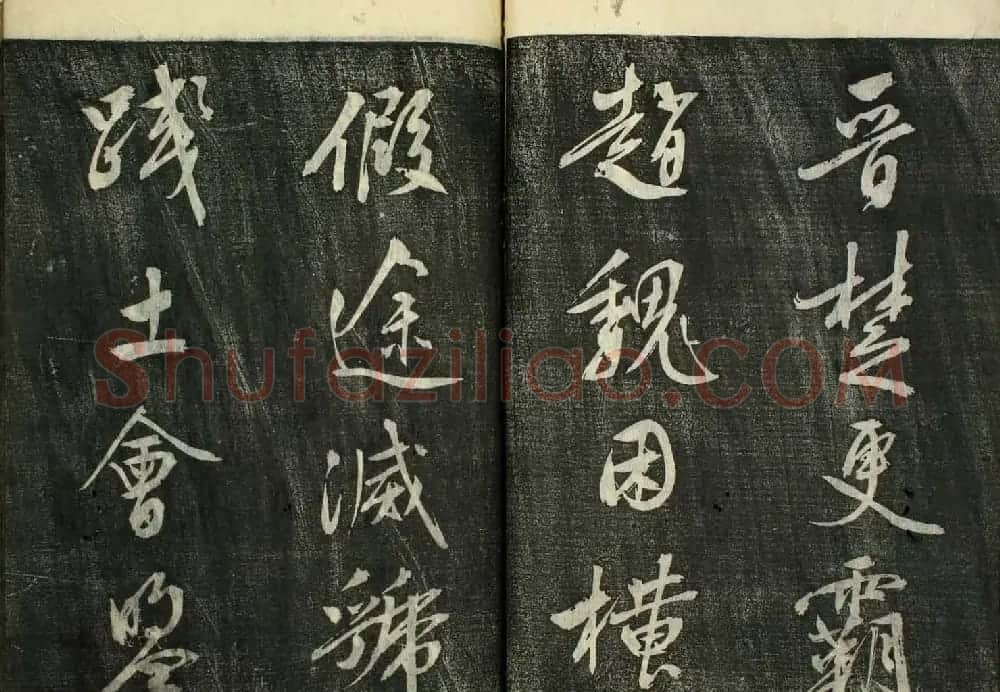 晉楚更霸
趙魏困橫
假途滅虢
踐土會盟
Shufaziliao.COM